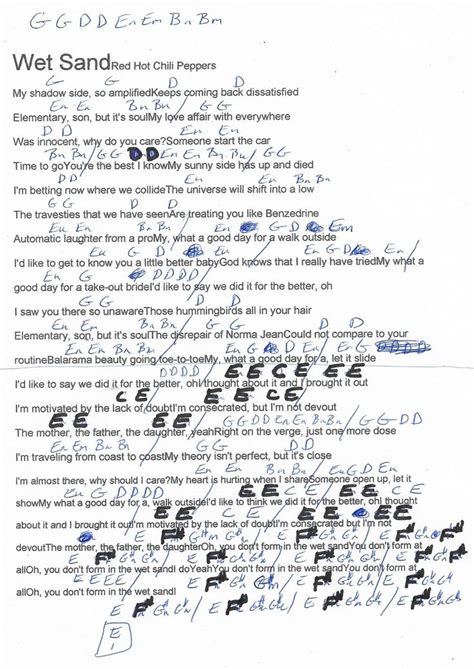 G G D D Em Em Bm Bm
Wet Sand Red Hot Chili Peppers
G G D D
My shadow side, so amplifiedKeeps coming back dissatisfied
Em Em Bm Bm / G G
Elementary, son, but it's soulMy love affair with everywhere
D D Em Em
Was innocent, why do you care?Someone start the car
Bm Bm / G G D D Em Em Bm Bm / G G
Time to goYou're the best I knowMy sunny side has up and died
D D Em Em Bm Bm
I'm betting now where we collideThe universe will shift into a low
G G D D
The travesties that we have seenAre treating you like Benzedrine
Em Em Bm Bm Em G D Em
Automatic laughter from a proMy, what a good day for a walk outside
Em G D Em G D Em /
I'd like to get to know you a little better babyGod knows that I really have triedMy what a
Em G D D D D
good day for a take-out brideI'd like to say we did it for the better, oh
G G D D
I saw you there so unawareThose hummingbirds all in your hair
Em Em Bm Bm / G G D D
Elementary, son, but it's soulThe disrepair of Norma JeanCould not compare to your
Em Em Bm Bm Em G D Em G
routineBalarama beauty going toe-to-toeMy, what a good day for a, let it slide
D D D D E E C E E E
I'd like to say we did it for the better, ohI thought about it and I brought it out
C E E E C E
I'm motivated by the lack of doubtI'm consecrated, but I'm not devout
E E E E G G D D Em Em Bm Bm / G G D D
The mother, the father, the daughter, yeahRight on the verge, just one more dose
Em Em Bm Bm G G D D
I'm traveling from coast to coastMy theory isn't perfect, but it's close
Em Em Bm Bm / Em G D Em
I'm almost there, why should I care?My heart is hurting when I shareSomeone open up, let it
Em G D D D D E E C E
showMy what a good day for a, walk outsideI'd like to think we did it for the better, ohI thought
E E C E E E
about it and I brought it outI'm motivated by the lack of doubtI'm consecrated but I'm not
devoutThe mother, the father, the daughterOh, you don't form in the wet sandYou don't form at
allOh, you don't form in the wet sandI doYeahYou don't form in the wet sandYou don't form at
E E E E
allOh, you don't form in the wet sandI
E
1